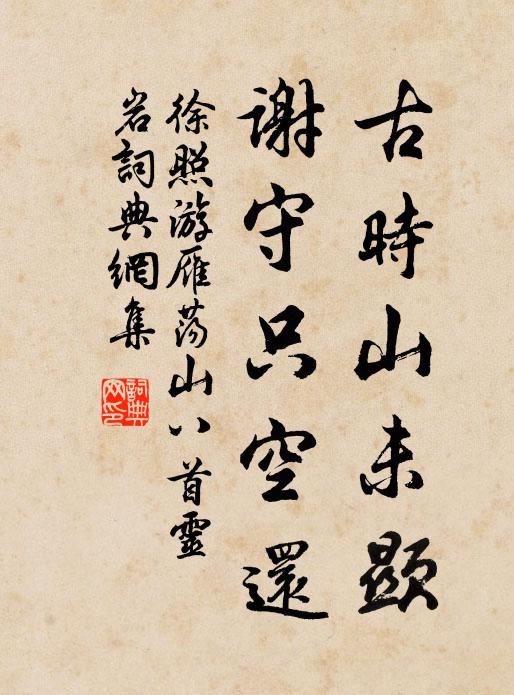 古時山未顯
謝守只空還
徐照游雁蕩山八首靈
岩詞典網集
詞典网印